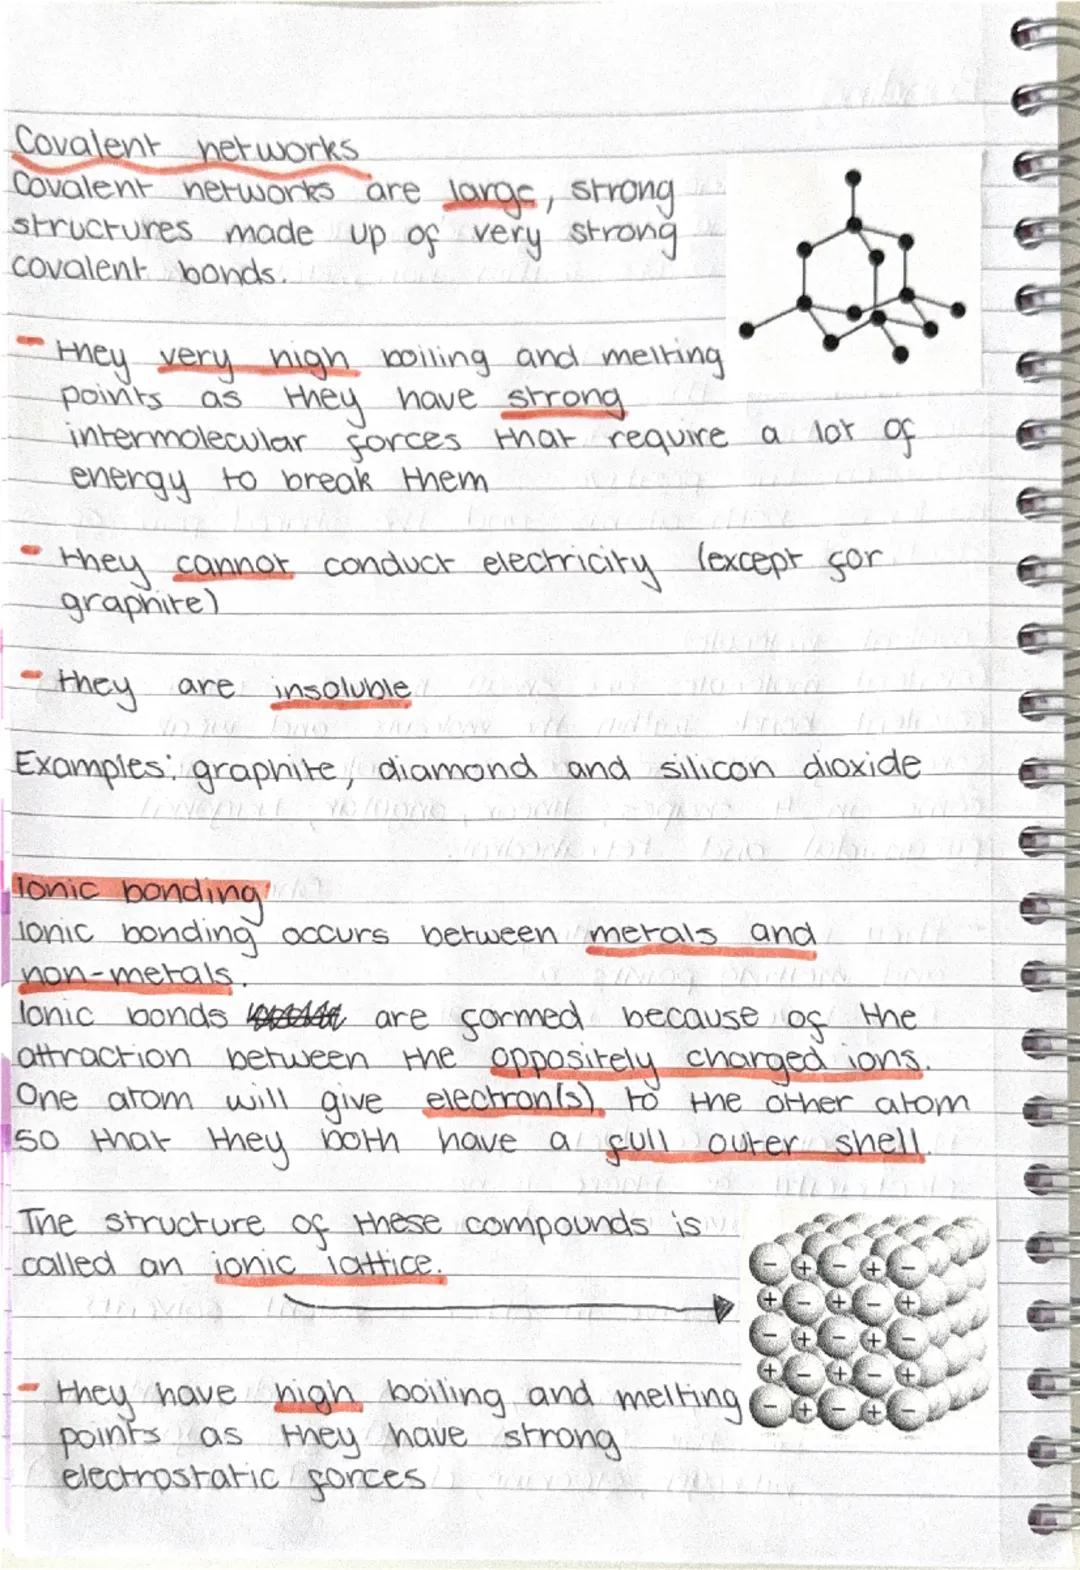 Covalent networks
Covalent networks are large, strong
structures made up of very strong
covalent bonds.
- they very high boiling and melting
points as they have strong
intermolecular forces that require a lot of
energy to break them
- they cannot conduct electricity (except for
graphite)
- they are insoluble
Examples: graphite, diamond and silicon dioxide
Ionic bonding
Ionic bonding occurs between metals and
non-metals.
Ionic bonds are formed because of the
attraction between the oppositely charged ions.
One atom will give electron(s) to the other atom
so that they both have a full outer shell.
The structure of these compounds is
called an ionic lattice.
- + - + -
+ - + - +
- + - + -
+ - + - +
- + - + -
- they have high boiling and melting
points as they have strong
electrostatic forces